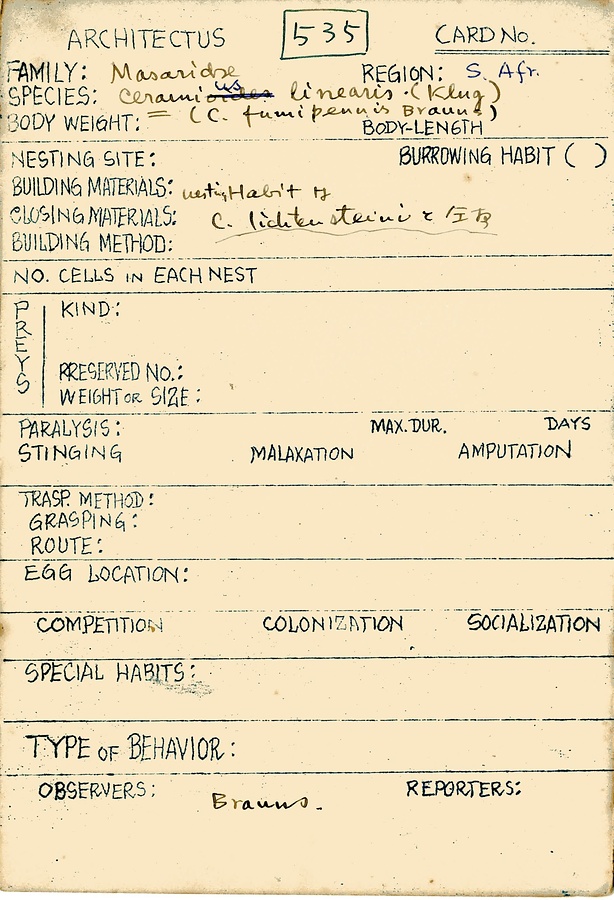 ARCHITECTUS 535 CARD NO.
FAMILY: Masaridae REGION: S. Afr.
SPECIES: Ceramius linearis (Klug)
BODY WEIGHT: = (C. fumipennis Brauns)
BODY-LENGTH
NESTING SITE: BURROWING HABIT ( )
BUILDING MATERIALS: nesting Habit は
CLOSING MATERIALS: C. lichtensteini と
BUILDING METHOD:
NO. CELLS IN EACH NEST
PREYS KIND:
PRESERVED NO.:
WEIGHT OR SIZE:
PARALYSIS: MAX. DUR. DAYS
STINGING MALAXATION AMPUTATION
TRASP. METHOD:
GRASPING:
ROUTE:
EGG LOCATION:
COMPETITION COLONIZATION SOCIALIZATION
SPECIAL HABITS:
TYPE OF BEHAVIOR:
OBSERVERS: Brauns. REPORTERS: